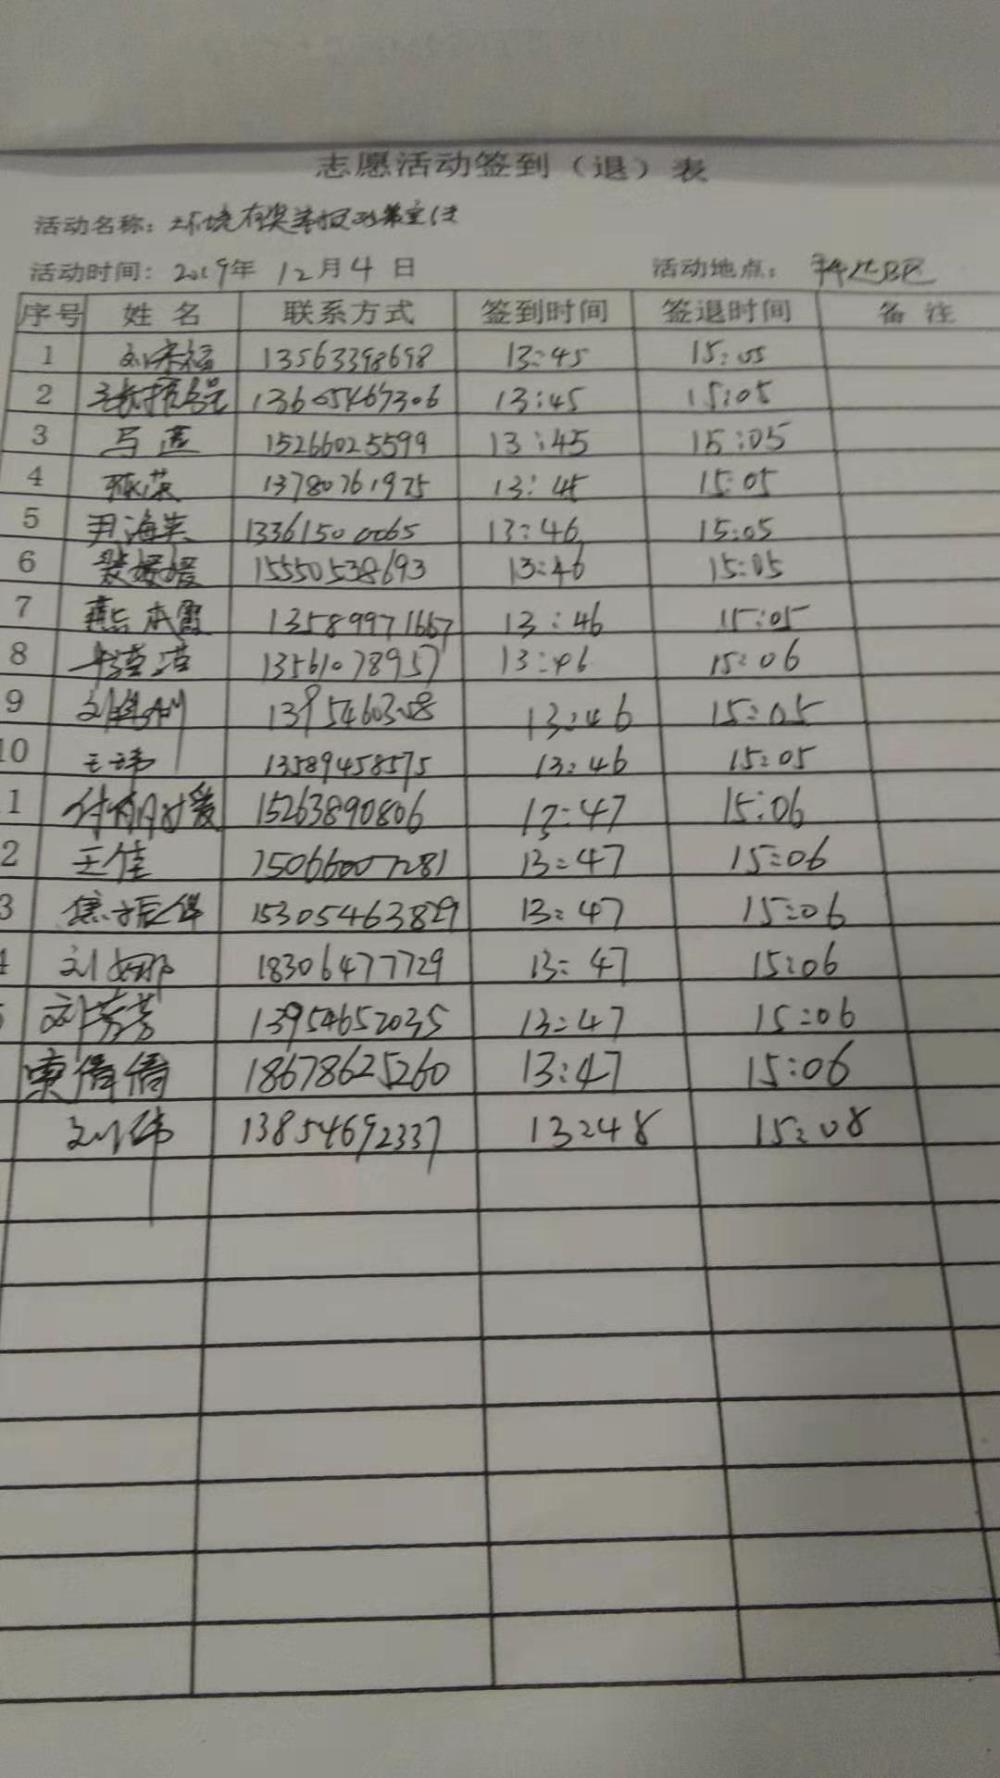 志愿活动签到（退）表
活动名称：环境有奖举报政策宣传
活动时间：2019年 12月4日 活动地点：
序号 姓名 联系方式 签到时间 签退时间 备注
1 13563398698 13:45 15:05
2 13605467306 13:45 15:05
3 马莲 15266025599 13:45 15:05
4 13780761975 13:45 15:05
5 尹海英 13361500065 13:46 15:05
6 裴媛媛 15550538693 13:46 15:05
7 燕本霞 13589971667 13:46 15:05
8 13561078957 13:46 15:06
9 13:46 15:05
10 王玮 13589458575 13:46 15:05
1 15263890806 13:47 15:06
2 王佳 15066007281 13:47 15:06
3 焦振伟 15305463829 13:47 15:06
4 刘娜 18306477729 13:47 15:06
刘芳芳 13954652035 13:47 15:06
索倩倩 18678625260 13:47 15:06
刘伟 13854692337 13:48 15:08